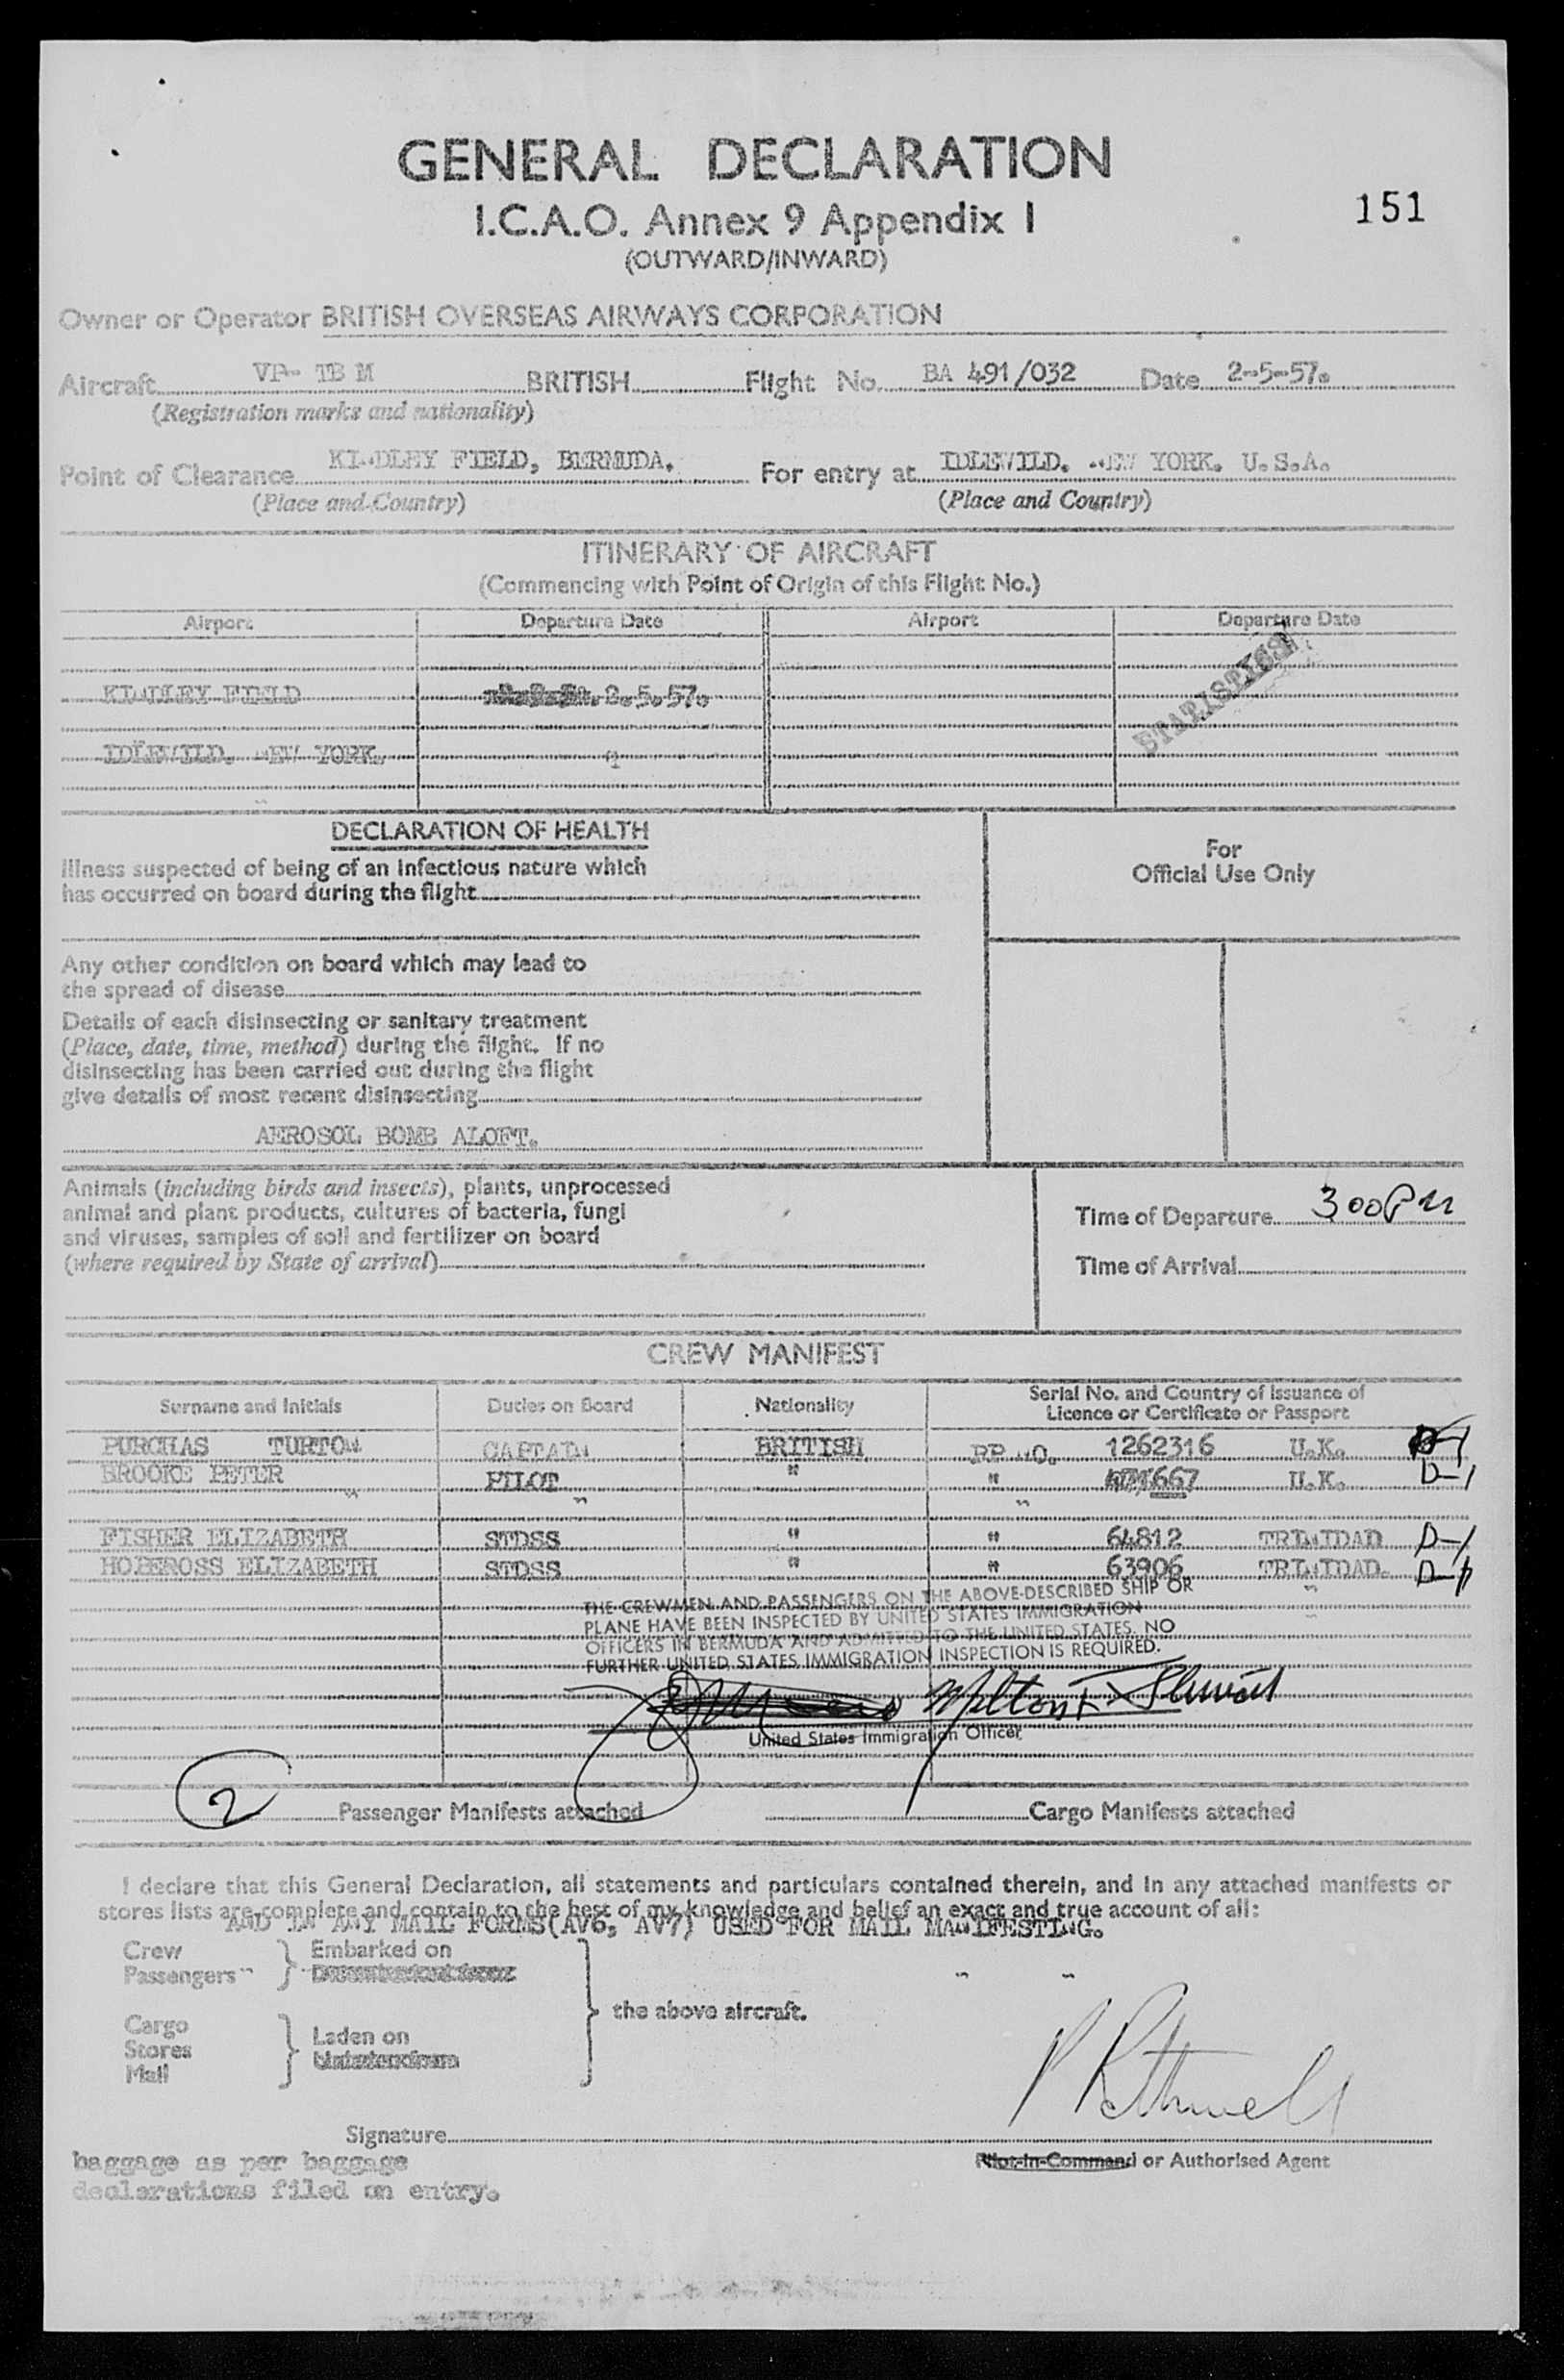 GENERAL DECLARATION
I.C.A.O. Annex 9 Appendix I
151
(OUTWARD/INWARD)
Owner or Operator BRITISH OVERSEAS AIRWAYS CORPORATION
Aircraft VP- TB M BRITISH Flight No. BA 491/032 Date 2-5-57.
(Registration marks and nationality)
Point of Clearance KINDLEY FIELD, BERMUDA. For entry at IDLEWILD. NEW YORK. U.S.A.
(Place and Country) (Place and Country)
ITINERARY OF AIRCRAFT
(Commencing with Point of Origin of this Flight No.)
Airport Departure Date Airport Departure Date
STATISTICS
KINDLEY FIELD 2.5.57.
IDLEWILD. NEW YORK.
DECLARATION OF HEALTH
Illness suspected of being of an infectious nature which
has occurred on board during the flight
For
Official Use Only
Any other condition on board which may lead to
the spread of disease
Details of each disinsecting or sanitary treatment
(Place, date, time, method) during the flight. If no
disinsecting has been carried out during the flight
give details of most recent disinsecting
AEROSOL BOMB ALOFT.
Animals (including birds and insects), plants, unprocessed
animal and plant products, cultures of bacteria, fungi
and viruses, samples of soil and fertilizer on board
(where required by State of arrival)
Time of Departure 300PM
Time of Arrival
CREW MANIFEST
Surname and Initials Duties on Board Nationality Serial No. and Country of Issuance of
Licence or Certificate or Passport
PURCHAS TURTON CAPTAIN BRITISH PP NO. 1262316 U.K. D-1
BROOKE PETER PILOT " " 667 U.K. D-1
FISHER ELIZABETH STDSS " " 64812 TRINIDAD D-1
HOPEROSS ELIZABETH STDSS " " 63906 TRINIDAD. D-1
THE CREWMEN AND PASSENGERS ON THE ABOVE-DESCRIBED SHIP OR
PLANE HAVE BEEN INSPECTED BY UNITED STATES IMMIGRATION
OFFICERS IN BERMUDA AND ADMITTED TO THE UNITED STATES. NO
FURTHER UNITED STATES IMMIGRATION INSPECTION IS REQUIRED.
Milton
United States Immigration Officer
2 Passenger Manifests attached Cargo Manifests attached
I declare that this General Declaration, all statements and particulars contained therein, and in any attached manifests or
stores lists are complete and contain to the best of my knowledge and belief an exact and true account of all:
AND IN ANY MAIL FORMS(AV6, AV7) USED FOR MAIL MANIFESTING.
Crew
Passengers
Embarked on
the above aircraft.
Cargo
Stores
Mail
Laden on
Signature
Pilot-in-Command or Authorised Agent
baggage as per baggage
declarations filed on entry.